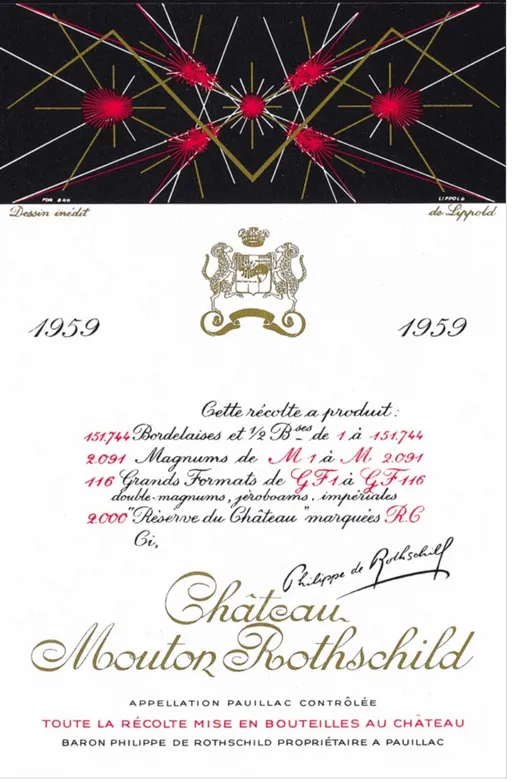 LIPPOLD
Dessin inédit
de Lippold
1959
1959
Cette récolte a produit :
151,744 Bordelaises et 1/2 B^ses de 1 à 151,744
2.091 Magnums de M 1 à M. 2.091
116 Grands Formats de GF1 à GF 116
double-magnums, jéroboams, impériales
2.000 "Réserve du Château" marquées R.C
Ci,
Philippe de Rothschild
Château
Mouton Rothschild
APPELLATION PAUILLAC CONTRÔLÉE
TOUTE LA RÉCOLTE MISE EN BOUTEILLES AU CHÂTEAU
BARON PHILIPPE DE ROTHSCHILD PROPRIÉTAIRE A PAUILLAC